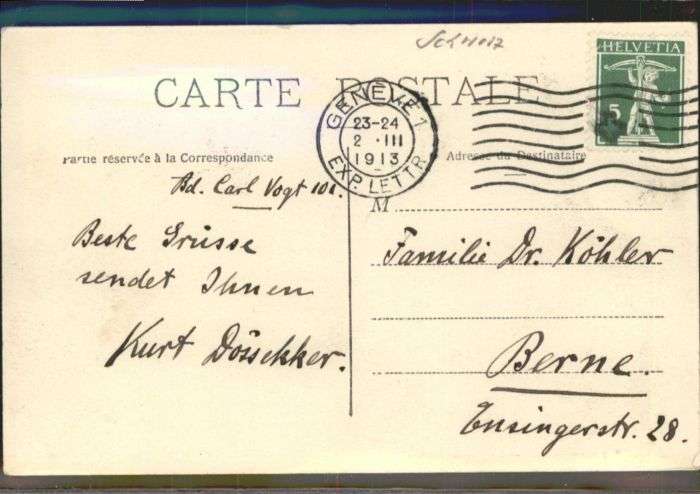 HELVETIA
5
CARTE POSTALE
GENÈVE 1
23-24
2 · III
1913
EXP. LETTR.
Partie réservée à la Correspondance
Adresse du Destinataire
Bd. Carl Vogt 101.
Beste Grüsse
sendet Ihnen
Kurt Dössekker.
M
Familie Dr. Köhler
Berne.
Ensingerstr. 28.